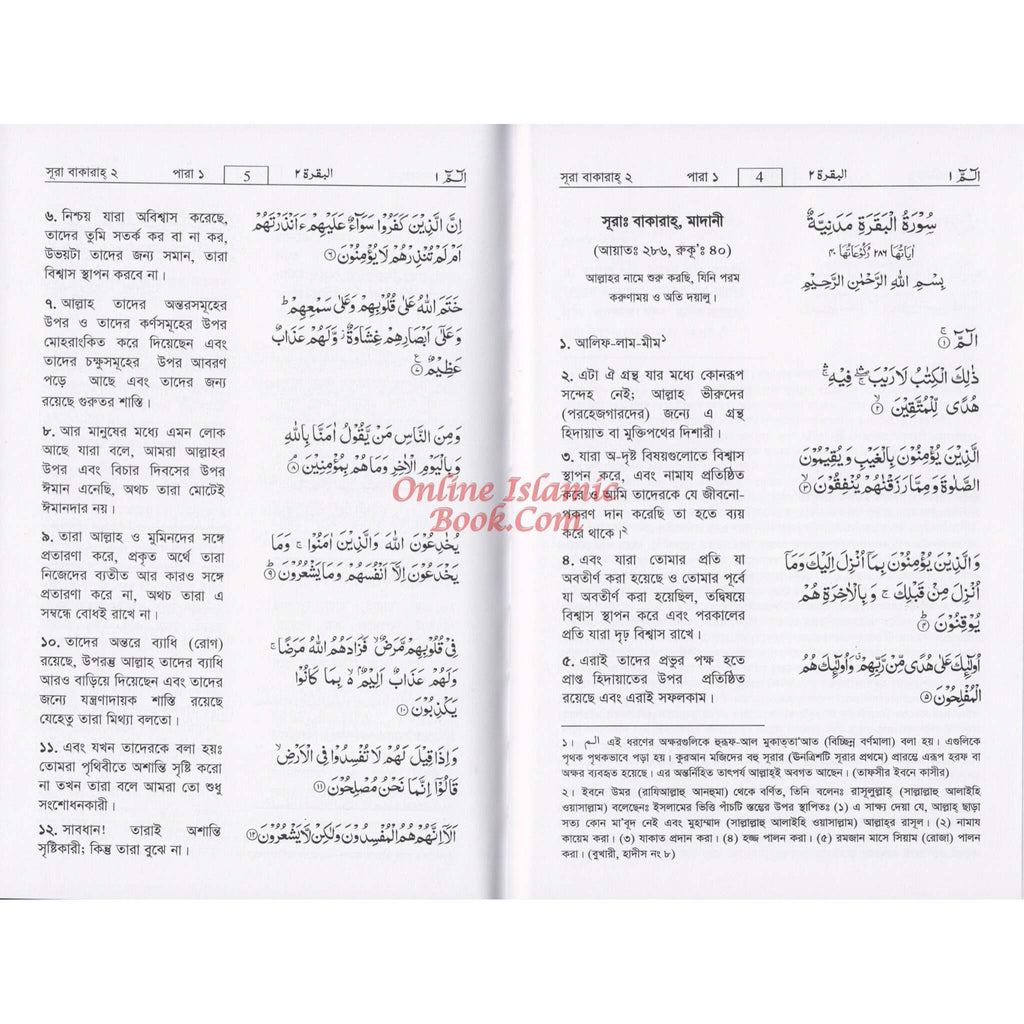 সূরা বাকারাহ্ ২ পারা ১ 4 البقرة ٢ الٓمّٓ ١
সূরাঃ বাকারাহ্, মাদানী
(আয়াতঃ ২৮৬, রুকূ'ঃ ৪০)
আল্লাহর নামে শুরু করছি, যিনি পরম
করুণাময় ও অতি দয়ালু।
سُوْرَةُ الْبَقَرَةِ مَدَنِيَّةٌ
اٰيَاتُهَا ٢٨٦ رُكُوْعَاتُهَا ٤٠
بِسْمِ اللهِ الرَّحْمٰنِ الرَّحِيْمِ
১. আলিফ-লাম-মীম১
الٓمّٓ ۚ ﴿١﴾
২. এটা ঐ গ্রন্থ যার মধ্যে কোনরূপ
সন্দেহ নেই; আল্লাহ ভীরুদের
(পরহেজগারদের) জন্যে এ গ্রন্থ
হিদায়াত বা মুক্তিপথের দিশারী।
ذٰلِكَ الْكِتٰبُ لَا رَيْبَ ۛۖ فِيْهِ ۛۚ
هُدًى لِّلْمُتَّقِيْنَ ﴿٢﴾
৩. যারা অ-দৃষ্ট বিষয়গুলোতে বিশ্বাস
স্থাপন করে, এবং নামায প্রতিষ্ঠিত
করে ও আমি তাদেরকে যে জীবনো-
পকরণ দান করেছি তা হতে ব্যয়
করে থাকে।২
الَّذِيْنَ يُؤْمِنُوْنَ بِالْغَيْبِ وَيُقِيْمُوْنَ
الصَّلٰوةَ وَمِمَّا رَزَقْنٰهُمْ يُنْفِقُوْنَ ﴿٣﴾
৪. এবং যারা তোমার প্রতি যা
অবতীর্ণ করা হয়েছে ও তোমার পূর্বে
যা অবতীর্ণ করা হয়েছিল, তদ্বিষয়ে
বিশ্বাস স্থাপন করে এবং পরকালের
প্রতি যারা দৃঢ় বিশ্বাস রাখে।
وَالَّذِيْنَ يُؤْمِنُوْنَ بِمَآ اُنْزِلَ اِلَيْكَ وَمَآ
اُنْزِلَ مِنْ قَبْلِكَ ۚ وَبِالْاٰخِرَةِ هُمْ
يُوْقِنُوْنَ ﴿٤﴾
৫. এরাই তাদের প্রভুর পক্ষ হতে
প্রাপ্ত হিদায়াতের উপর প্রতিষ্ঠিত
রয়েছে এবং এরাই সফলকাম।
اُولٰٓئِكَ عَلٰى هُدًى مِّنْ رَّبِّهِمْ وَاُولٰٓئِكَ هُمُ
الْمُفْلِحُوْنَ ﴿٥﴾
১। الم এই ধরণের অক্ষরগুলিকে হুরূফ-আল মুকাত্তা'আত (বিচ্ছিন্ন বর্ণমালা) বলা হয়। এগুলিকে
পৃথকপৃথকভাবে পড়া হয়। কুরআন মজিদের বহু সূরার (ঊনত্রিশটি সূরার প্রথমে) প্রারম্ভে এরূপ হরফ বা
অক্ষর ব্যবহৃত হয়েছে। এর অন্তর্নিহিত তাৎপর্য আল্লাহ্ই অবগত আছেন। (তাফসীর ইবনে কাসীর)
২। ইবনে উমর (রাযিআল্লাহু আনহুমা) থেকে বর্ণিত, তিনি বলেনঃ রাসূলুল্লাহ্ (সাল্লাল্লাহু আলাইহি
ওয়াসাল্লাম) বলেছেনঃ ইসলামের ভিত্তি পাঁচটি স্তম্ভের উপর স্থাপিতঃ (১) এ সাক্ষ্য দেয়া যে, আল্লাহ্ ছাড়া
সত্য কোন মা'বূদ নেই এবং মুহাম্মাদ (সাল্লাল্লাহু আলাইহি ওয়াসাল্লাম) আল্লাহর রাসূল। (২) নামায
কায়েম করা। (৩) যাকাত প্রদান করা। (৪) হজ্জ পালন করা। (৫) রমজান মাসে সিয়াম (রোজা) পালন
করা। (বুখারী, হাদীস নং ৮)
সূরা বাকারাহ্ ২ পারা ১ 5 البقرة ٢ الٓمّٓ ١
৬. নিশ্চয় যারা অবিশ্বাস করেছে,
তাদের তুমি সতর্ক কর বা না কর,
উভয়টা তাদের জন্য সমান, তারা
বিশ্বাস স্থাপন করবে না।
اِنَّ الَّذِيْنَ كَفَرُوْا سَوَآءٌ عَلَيْهِمْ ءَاَنْذَرْتَهُمْ
اَمْ لَمْ تُنْذِرْهُمْ لَا يُؤْمِنُوْنَ ﴿٦﴾
৭. আল্লাহ তাদের অন্তরসমূহের
উপর ও তাদের কর্ণসমূহের উপর
মোহরাংকিত করে দিয়েছেন এবং
তাদের চক্ষুসমূহের উপর আবরণ
পড়ে আছে এবং তাদের জন্য
রয়েছে গুরুতর শাস্তি।
خَتَمَ اللهُ عَلٰى قُلُوْبِهِمْ وَعَلٰى سَمْعِهِمْ ؕ
وَعَلٰٓى اَبْصَارِهِمْ غِشَاوَةٌ ؗ وَّلَهُمْ عَذَابٌ
عَظِيْمٌ ﴿٧﴾
৮. আর মানুষের মধ্যে এমন লোক
আছে যারা বলে, আমরা আল্লাহর
উপর এবং বিচার দিবসের উপর
ঈমান এনেছি, অথচ তারা মোটেই
ঈমানদার নয়।
وَمِنَ النَّاسِ مَنْ يَّقُوْلُ اٰمَنَّا بِاللهِ
وَبِالْيَوْمِ الْاٰخِرِ وَمَا هُمْ بِمُؤْمِنِيْنَ ﴿٨﴾
৯. তারা আল্লাহ ও মুমিনদের সঙ্গে
প্রতারণা করে, প্রকৃত অর্থে তারা
নিজেদের ব্যতীত আর কারও সঙ্গে
প্রতারণা করে না, অথচ তারা এ
সম্বন্ধে বোধই রাখে না।
يُخٰدِعُوْنَ اللهَ وَالَّذِيْنَ اٰمَنُوْا ۚ وَمَا
يَخْدَعُوْنَ اِلَّآ اَنْفُسَهُمْ وَمَا يَشْعُرُوْنَ ﴿٩﴾
১০. তাদের অন্তরে ব্যাধি (রোগ)
রয়েছে, উপরন্তু আল্লাহ তাদের ব্যাধি
আরও বাড়িয়ে দিয়েছেন এবং তাদের
জন্যে যন্ত্রণাদায়ক শাস্তি রয়েছে
যেহেতু তারা মিথ্যা বলতো।
فِيْ قُلُوْبِهِمْ مَّرَضٌ ۙ فَزَادَهُمُ اللهُ مَرَضًا ۚ
وَلَهُمْ عَذَابٌ اَلِيْمٌ ۢ ۙ بِمَا كَانُوْا
يَكْذِبُوْنَ ﴿١٠﴾
১১. এবং যখন তাদেরকে বলা হয়ঃ
তোমরা পৃথিবীতে অশান্তি সৃষ্টি করো
না তখন তারা বলে আমরা তো শুধু
সংশোধনকারী।
وَاِذَا قِيْلَ لَهُمْ لَا تُفْسِدُوْا فِي الْاَرْضِ ۙ
قَالُوْٓا اِنَّمَا نَحْنُ مُصْلِحُوْنَ ﴿١١﴾
১২. সাবধান! তারাই অশান্তি
সৃষ্টিকারী; কিন্তু তারা বুঝে না।
اَلَآ اِنَّهُمْ هُمُ الْمُفْسِدُوْنَ وَلٰكِنْ لَّا يَشْعُرُوْنَ ﴿١٢﴾
Online Islamic
Book.Com